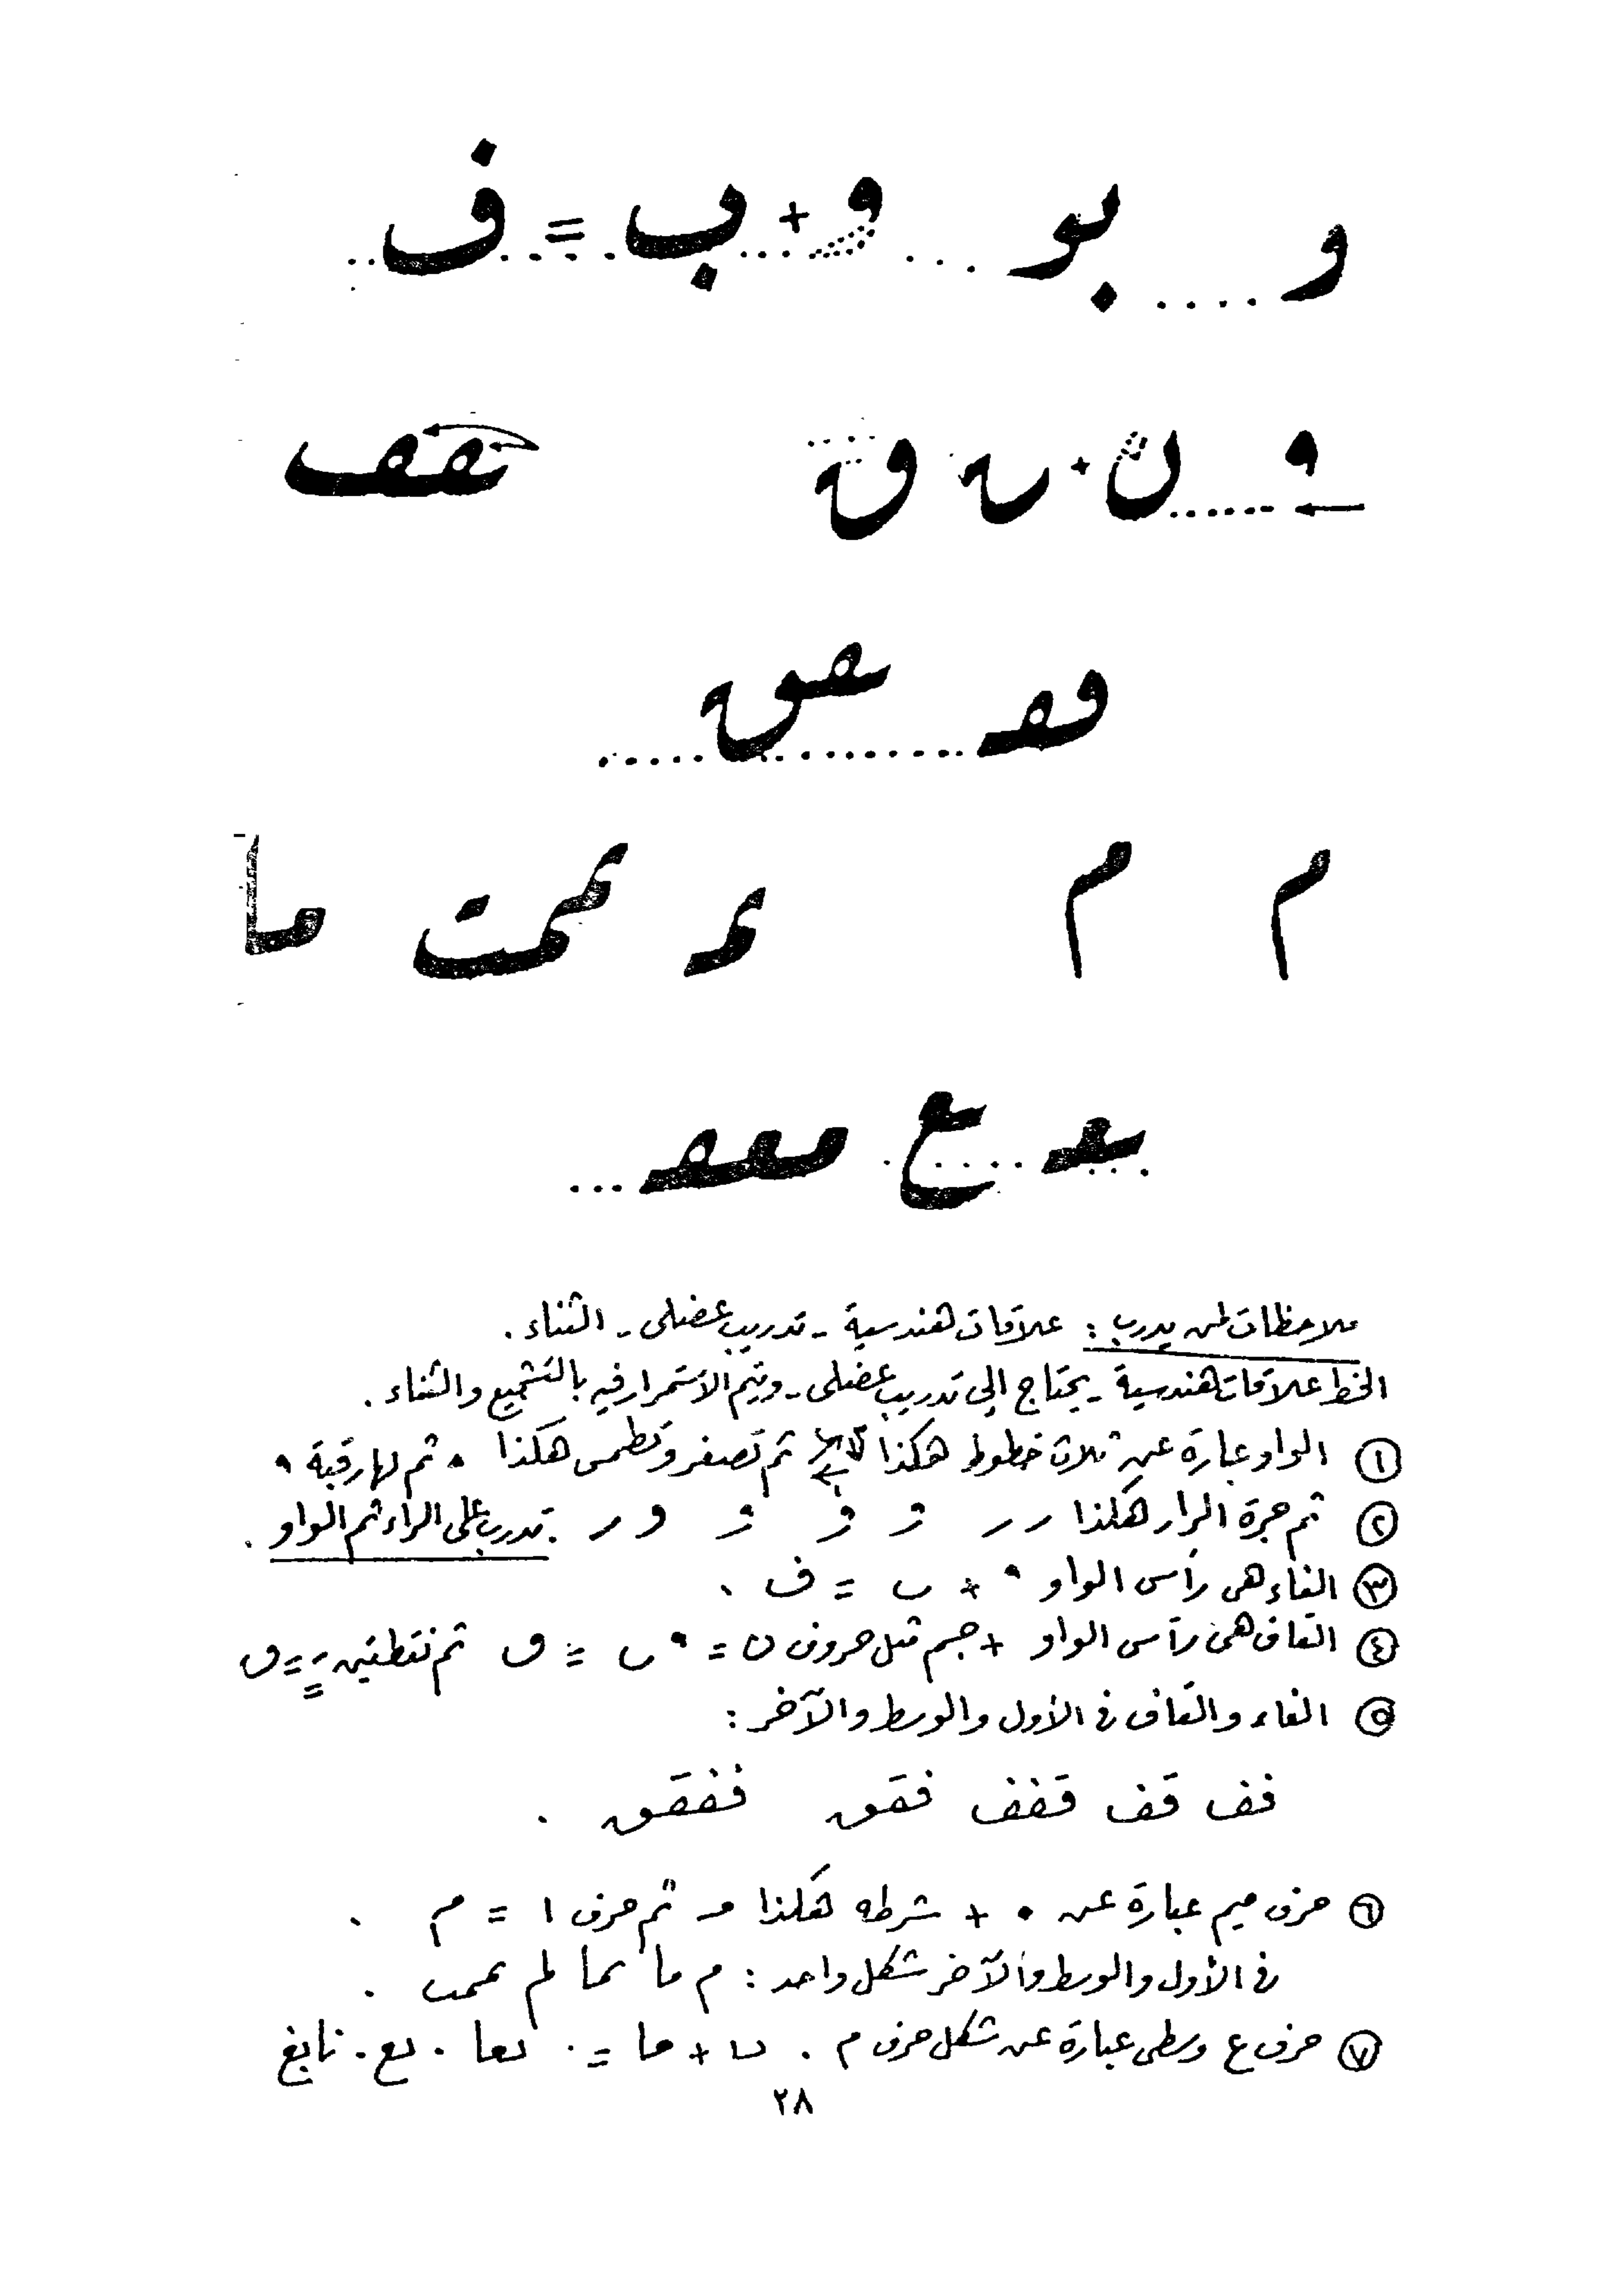 و .... بو ... و + ب = ف
و ...... ن + ں ق ققف
فقـ ققق
م م ممـ ممت ما
بعـ ع معفـ
ملاحظات لمن يدرب : علاقات هندسية - تدريب عضلى - الثناء .
الخط علاقات هندسية - يحتاج إلى تدريب عضلى - ويتم الاستمرار فيه بالتشجيع والثناء .
١ الواو عبارة عن ثلاث خطوط هكذا ثم تصغر وتطمس هكذا ثم لها رقبة
٢ ثم جرة الراء هكذا ر ر و و و و ر . تدرب على الراء ثم الواو .
٣ الفاء هى رأس الواو + ب = ف .
٤ القاف هى رأس الواو + جسم مثل حروف ن = ں = ق ثم نقطتين = ق
٥ الفاء والقاف فى الأول والوسط والآخر :
فف قف قفف فقق ففقق .
٦ حرف ميم عبارة عن • + شرطه هكذا مـ ثم حرف ا = م .
فى الأول والوسط والآخر شكل واحد : م ما مما لم ممت .
٧ حرف ع وسطى عبارة عن شكل حرف م . ں + ما = . لعا . لع . نابغ
٢٨